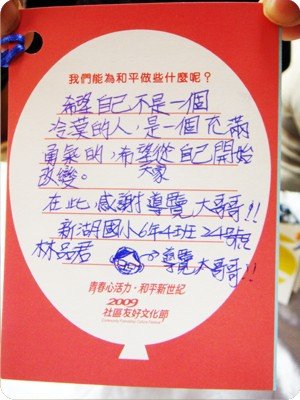 我們能為和平做些什麼呢？
希望自己不是一個
冷漠的人，是一個充滿
勇氣的，希望從自己開始
改變。 大家
在此，感謝導覽大哥哥!!
新湖國小6年4班 24號
林品君
導覽大哥哥!!
青春心活力·和平新世紀
2009
社區友好文化節